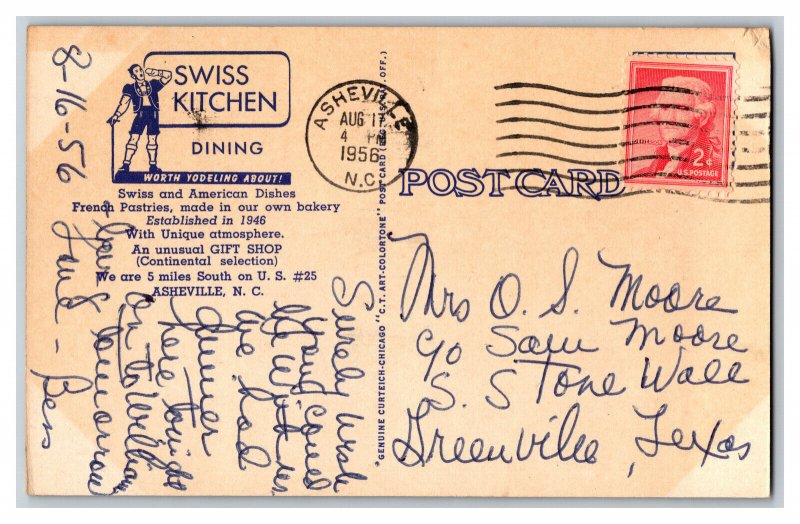 SWISS
KITCHEN
DINING
WORTH YODELING ABOUT!
Swiss and American Dishes
French Pastries, made in our own bakery
Established in 1946
With Unique atmosphere.
An unusual GIFT SHOP
(Continental selection)
We are 5 miles South on U. S. #25
ASHEVILLE, N. C.
8-16-56
Surely wish
you could
be with us
We had
dinner
here tonight
On to William
tomorrow
Love &
- Bess
"GENUINE CURTEICH-CHICAGO "C.T. ART-COLORTONE" POST CARD (REG. U.S. PAT. OFF.)
ASHEVILLE
AUG 17
4 PM
1956
N.C.
POST CARD
2¢
U.S. POSTAGE
Mrs O. S. Moore
c/o Sam Moore
S. Stone Wall
Greenville, Texas